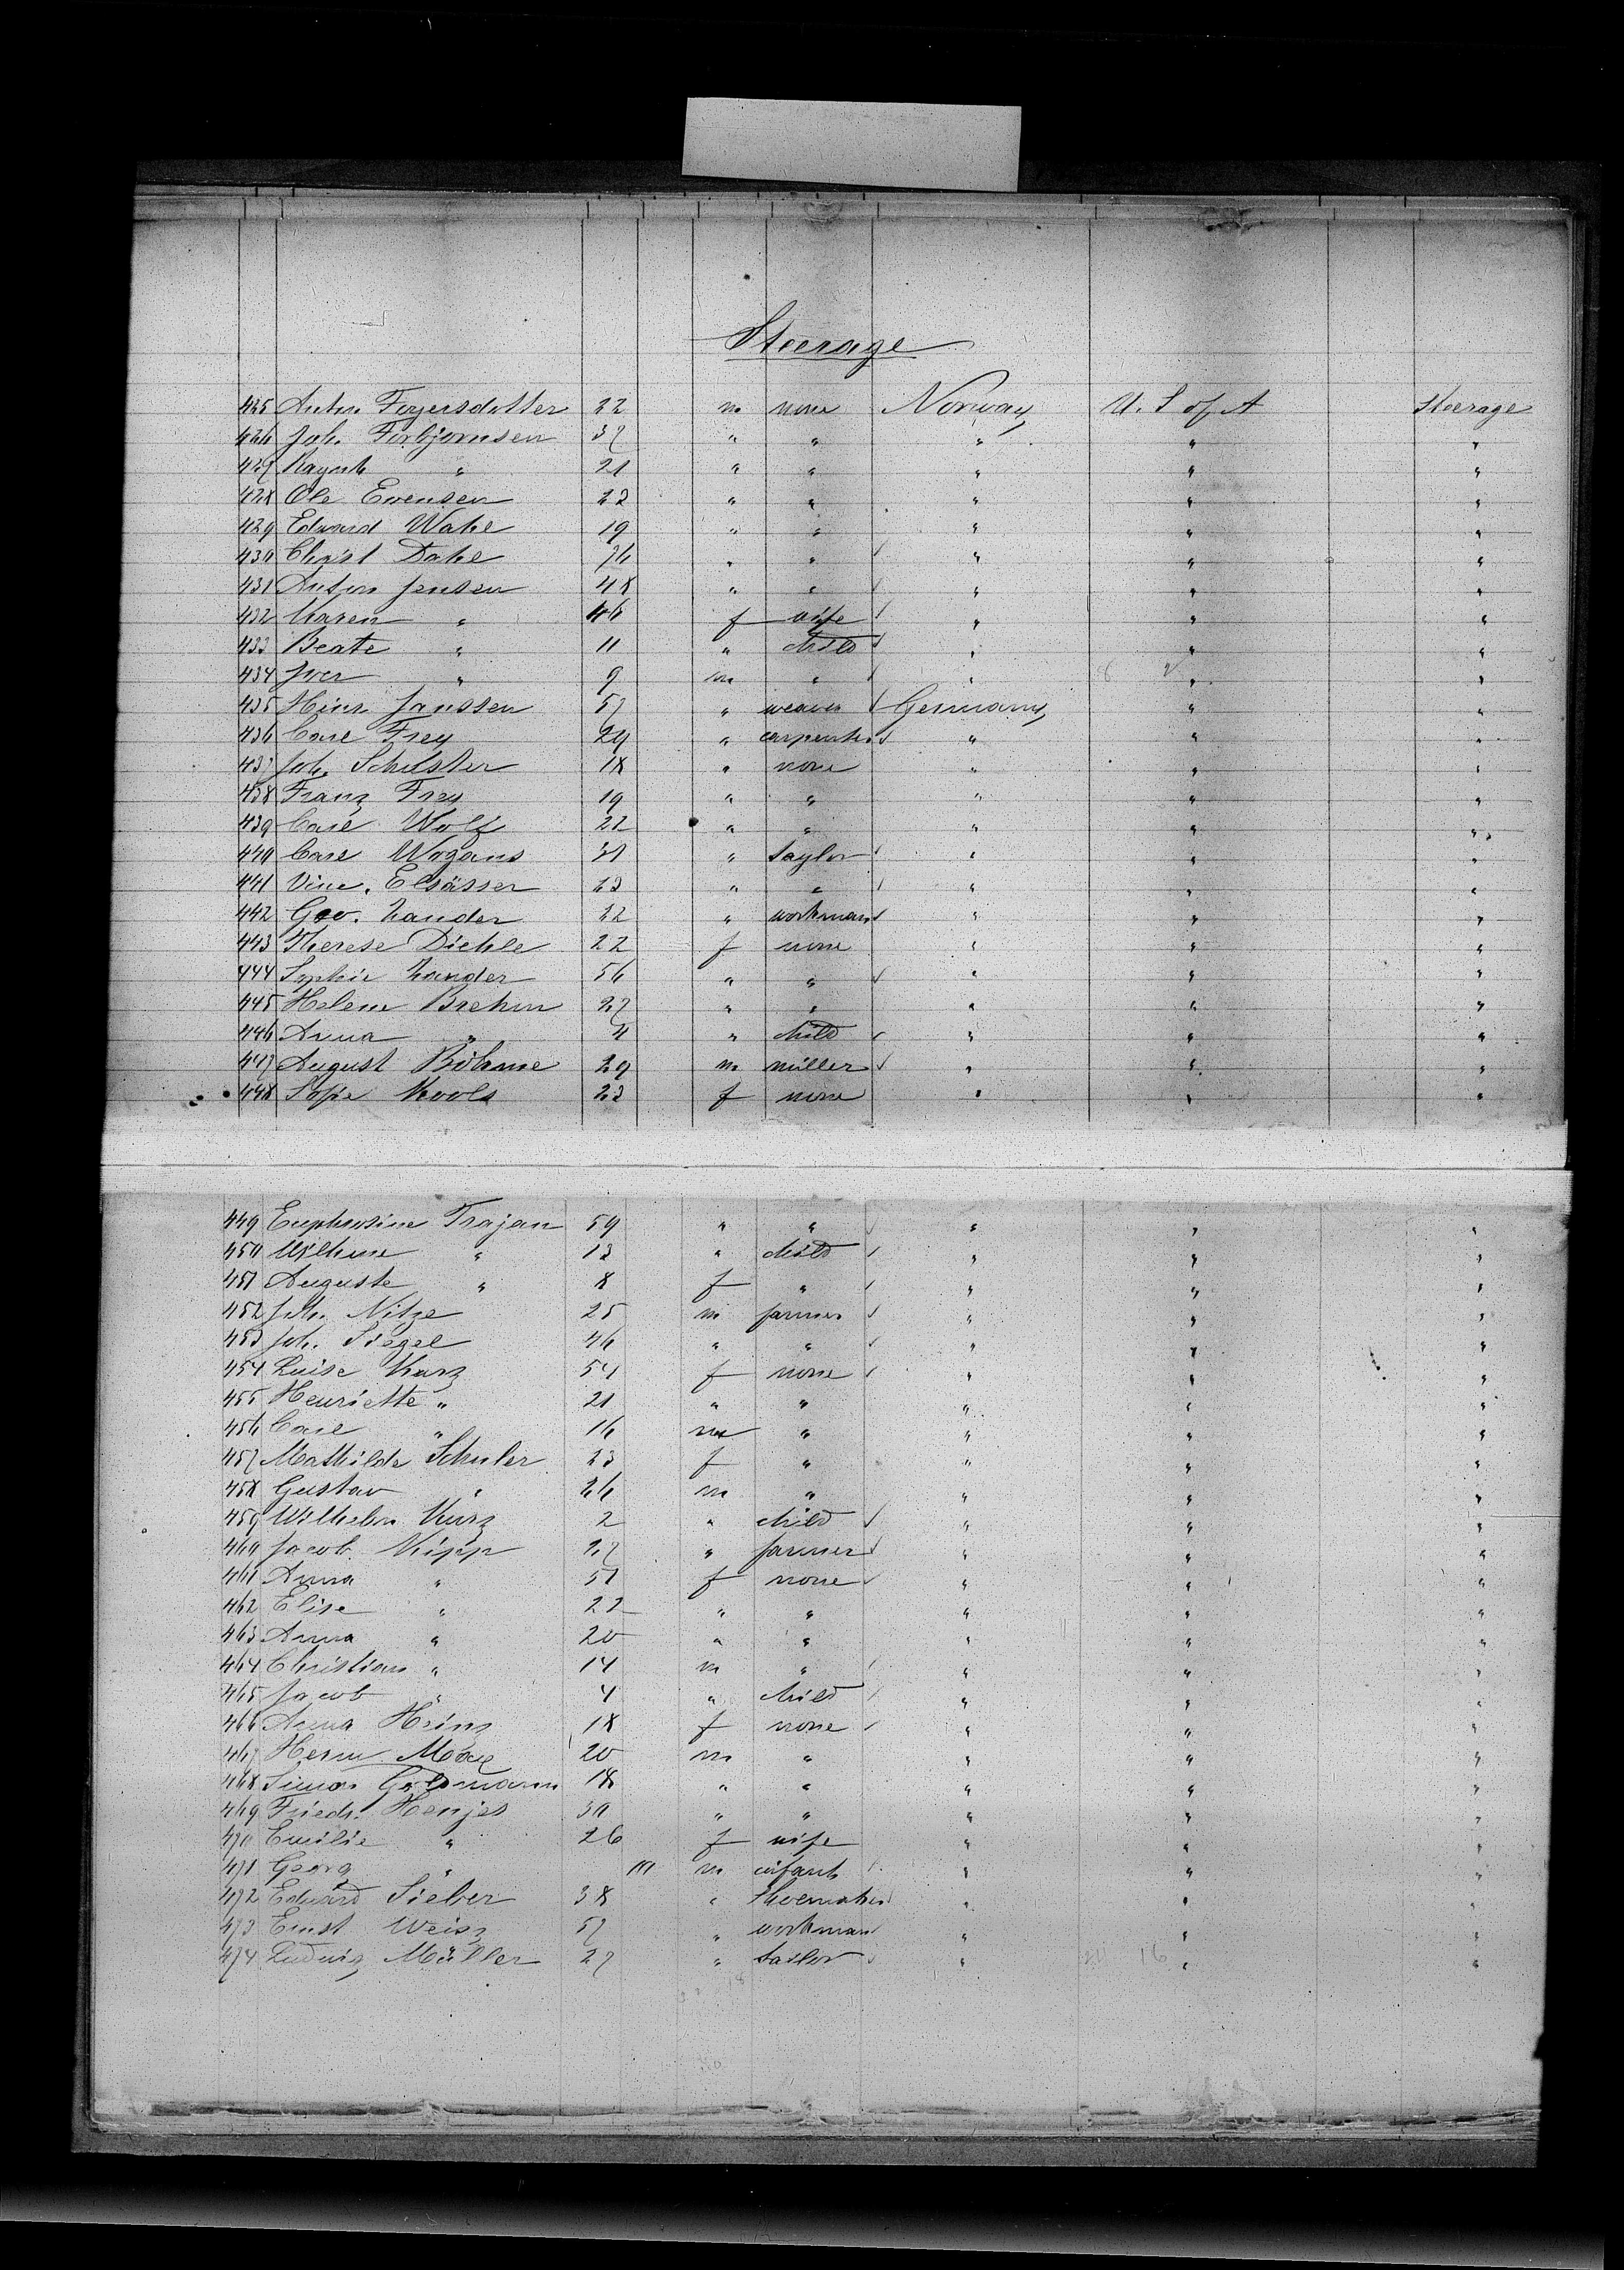 Steerage
425 Anton Torgersdotter 22 m none Norway U. S. of A Steerage
426 Joh. Torbjornsen 37 " " " " "
427 " 21 " " " " "
428 Ole Evensen 22 " " " " "
429 Edward Wahl 19 " " " " "
430 Christ Dahl 76 " " " " "
431 Anton Jensen 48 " " " " "
432 Karen " 46 f wife " " "
433 Beate " 11 " child " " "
434 Iver " 9 m " " " "
435 Heinr. Janssen 57 " weaver Germany " "
436 Carl Frey 29 " carpenter " " "
437 Joh. Schuster 18 " none " " "
438 Franz Frey 19 " " " " "
439 Carl Wolf 22 " " " " "
440 Carl Wogans 31 " taylor " " "
441 Vinc. Elsässer 23 " " " " "
442 Geo. Zander 32 " workman " " "
443 Therese Diehle 22 f none " " "
444 Sophie Zander 56 " " " " "
445 Helene Brehm 27 " " " " "
446 Anna " 4 " child " " "
447 August Böhme 29 m müller " " "
448 Sofie Kools 23 f none " " "
449 Euphrosine Trajan 59 " " " " "
450 Wilhme " 13 " child " " "
451 Auguste " 8 f " " " "
452 Joh. Nitze 25 m farmer " " "
453 Joh. Siegel 46 " " " " "
454 Luise Kurz 54 f none " " "
455 Henriette " 21 " " " " "
456 Carl " 16 m " " " "
457 Mathilde Schuler 23 f " " " "
458 Gustav " 26 m " " " "
459 Wilhelm Kurz 2 " child " " "
460 Jacob Kipp 27 " farmer " " "
461 Anna " 51 f none " " "
462 Elise " 22 " " " " "
463 Anna " 20 " " " " "
464 Christian " 14 m " " " "
465 Jacob " 4 " child " " "
466 Anna Heinz 18 f none " " "
467 Herm. 20 m " " " "
468 Simon Goldmann 18 " " " " "
469 Friedr. Henjes 30 " " " " "
470 Emilie " 26 f wife " " "
471 Georg " m infant " " "
472 Eduard Sieber 38 " Shoemaker " " "
473 Ernst Weisz 57 " workman " " "
474 Ludwig Müller 27 " tailor " " "